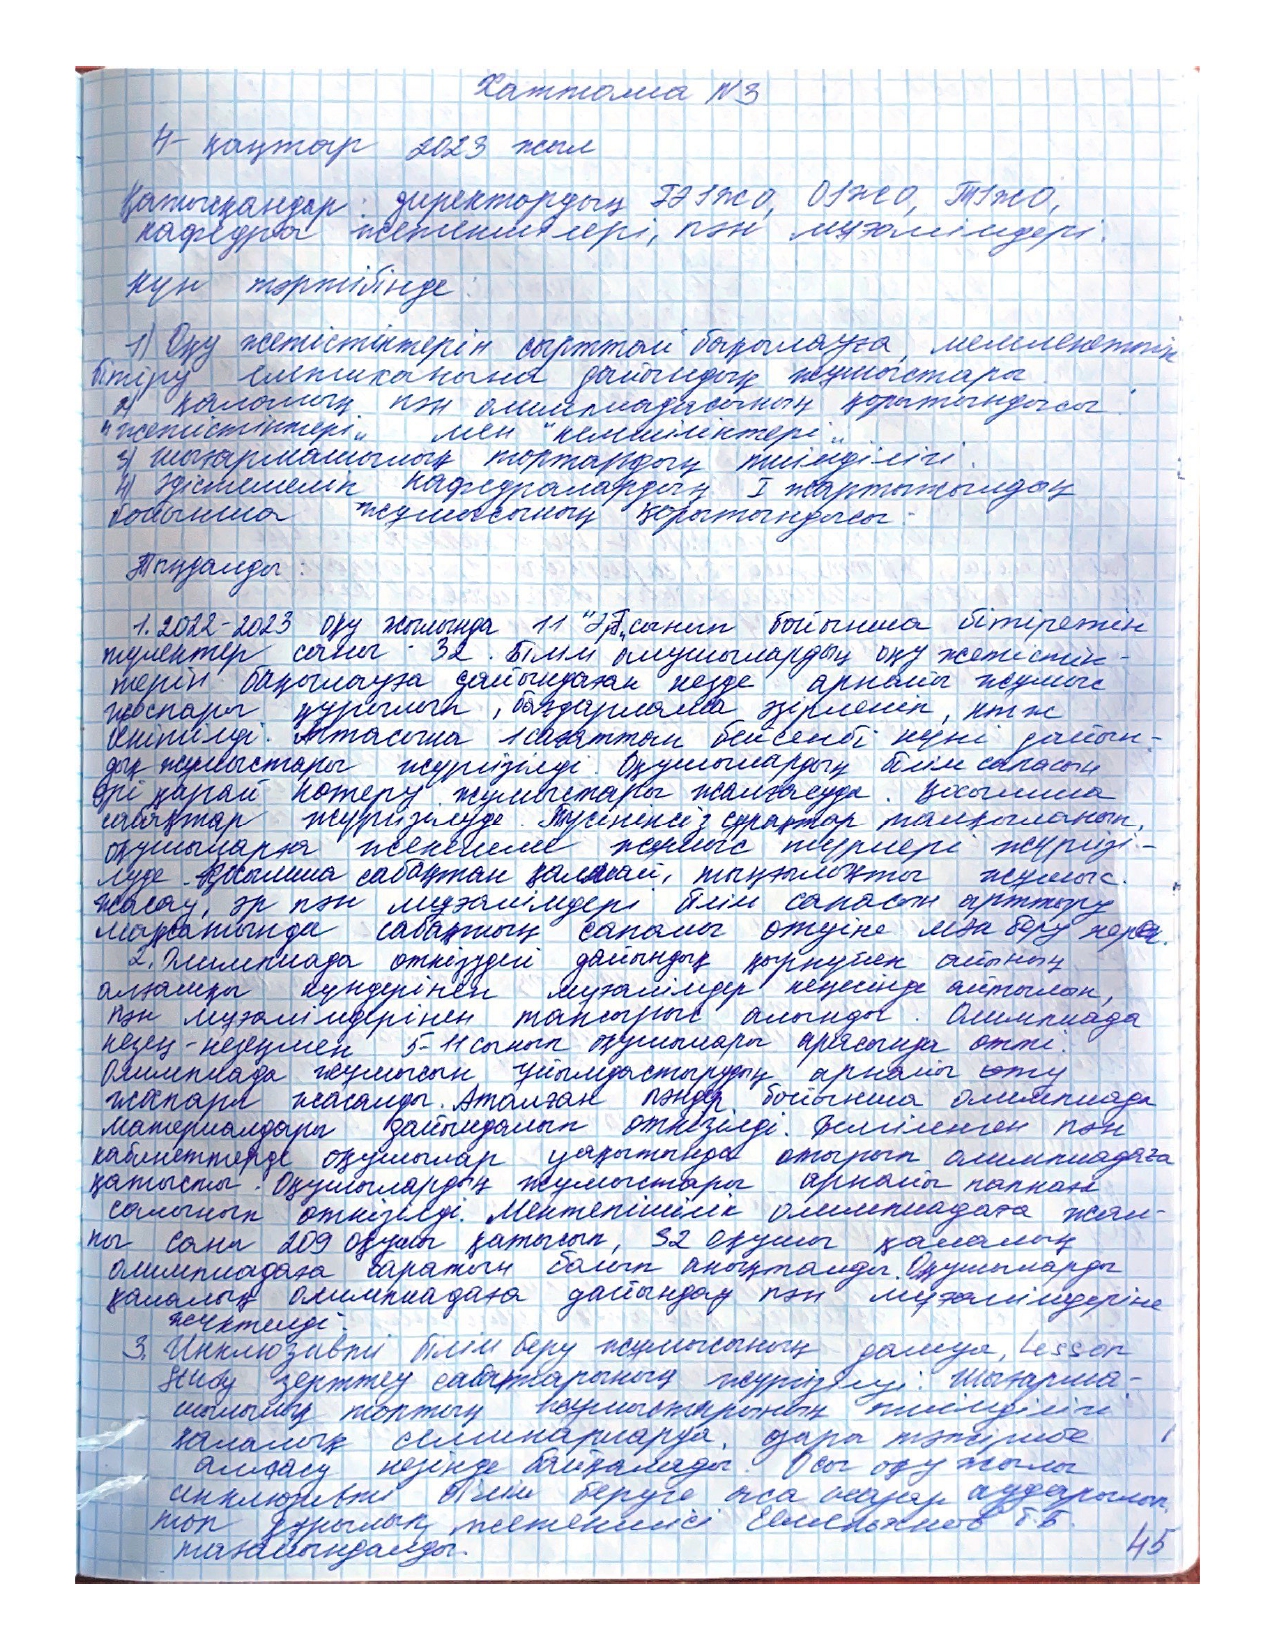 Хаттама №3
4- қаңтар 2023 жыл
Қатысқандар: директордың ОІЖО, ТІЖО,
кафедра жетекшілері, пән мұғалімдері.
Күн тәртібінде:
1) Оқу жетістіктерін сырттай бақылауға, мемлекеттік
бітіру емтиханына дайындық жұмыстары
2) қалалық пән олимпиадасының қорытындысы
"жетістіктері" мен "кемшіліктері"
3) Шығармашылық топтардың тиімділігі.
4) Әдістемелік кафедралардың I жартыжылдық
бойынша жұмысының қорытындысы.
Тыңдалды:
1. 2022-2023 оқу жылында 11 сынып бойынша бітіретін
түлектер саны - 32. Білім алушылардың оқу жетістік-
терін бақылауға дайындаған кезде арнайы жұмыс
жоспары құрылып, бағдарлама әзірленіп, ктж
бекітілді. Аптасына 1 сағаттан бейсенбі күні дайын-
дық жұмыстары жүргізілді. Оқушылардың білім сапасын
әрі қарай көтеру жұмыстары жалғасуда. Қосымша
сабақтар жүргізілуде. Түсініксіз сұрақтар талқыланып,
оқушыларға жекелеме жұмыс түрлері жүргізі-
луде. Қосымша сабақтан қалмай, тыңғылықты жұмыс
жасау, әр пән мұғалімдері білім сапасын арттыру
мақсатында сабақтың сапалы өтуіне мән беру керек.
2. Олимпиада өткізудегі дайындық қыркүйек айының
алғашқы күндерінен мұғалімдер кеңесінде айтылып,
пән мұғалімдерінен тапсырыс алынды. Олимпиада
кезең-кезеңмен 5-11 сынып оқушылары арасында өтті.
Олимпиада жұмысын ұйымдастырудың арнайы өту
жоспары жасалды. Аталған пәндер бойынша олимпиада
материалдары дайындалып өткізілді. Белгіленген пән
кабинеттерде оқушылар уақытында отырып олимпиадаға
қатысты. Оқушылардың жұмыстары арнайы папкаға
салынып өткізілді. Мектепішілік олимпиадаға жал-
пы саны 209 оқушы қатысып, 32 оқушы қалалық
олимпиадаға баратын болып анықталды. Оқушыларды
қалалық олимпиадаға дайындау пән мұғалімдеріне
жүктелді.
3. Инклюзивті білім беру жұмысының дамуы, Lesson
зерттеу сабақтарының жүргізілуі. Шығарма-
шылық топтың жұмыстарының тиімділігі
қалалық семинарларда, өзара тәжірибе
алмасу кезінде байқалады. Осы оқу жылы
инклюзивті білім беруге аса назар аударылып,
топ құрылып, жетекшісі
тағайындалды.
45